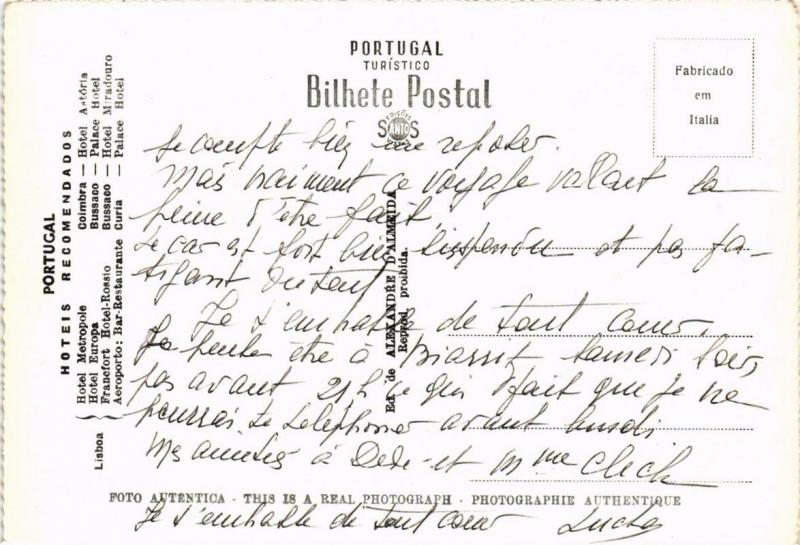 PORTUGAL
TURÍSTICO
Bilhete Postal
EDIÇÕES
SANTOS
Fabricado
em
Italia
PORTUGAL
HOTEIS RECOMENDADOS
Lisboa
Hotel Metropole
Hotel Europa
Francfort Hotel-Rossio
Aeroporto: Bar-Restaurante
Coimbra — Hotel Astória
Bussaco — Palace Hotel
Bussaco — Hotel Miradouro
Curia — Palace Hotel
Ed. de ALEXANDRE D'ALMEIDA
Reprod. proibida.
je compte bien me reposer.
Mais vraiment ce voyage vallait la
peine d'être fait.
Le car est fort bien et pas fa-
tigant du tout
Je t'embrasse de tout cœur.
Je pense être à Biarritz samedi soir,
pas avant 21h ce qui fait que je ne
pourrai te telephoner avant lundi
Mes amitiés à Dede et Mme Click
FOTO AUTENTICA - THIS IS A REAL PHOTOGRAPH - PHOTOGRAPHIE AUTHENTIQUE
Je t'embrasse de tout cœur